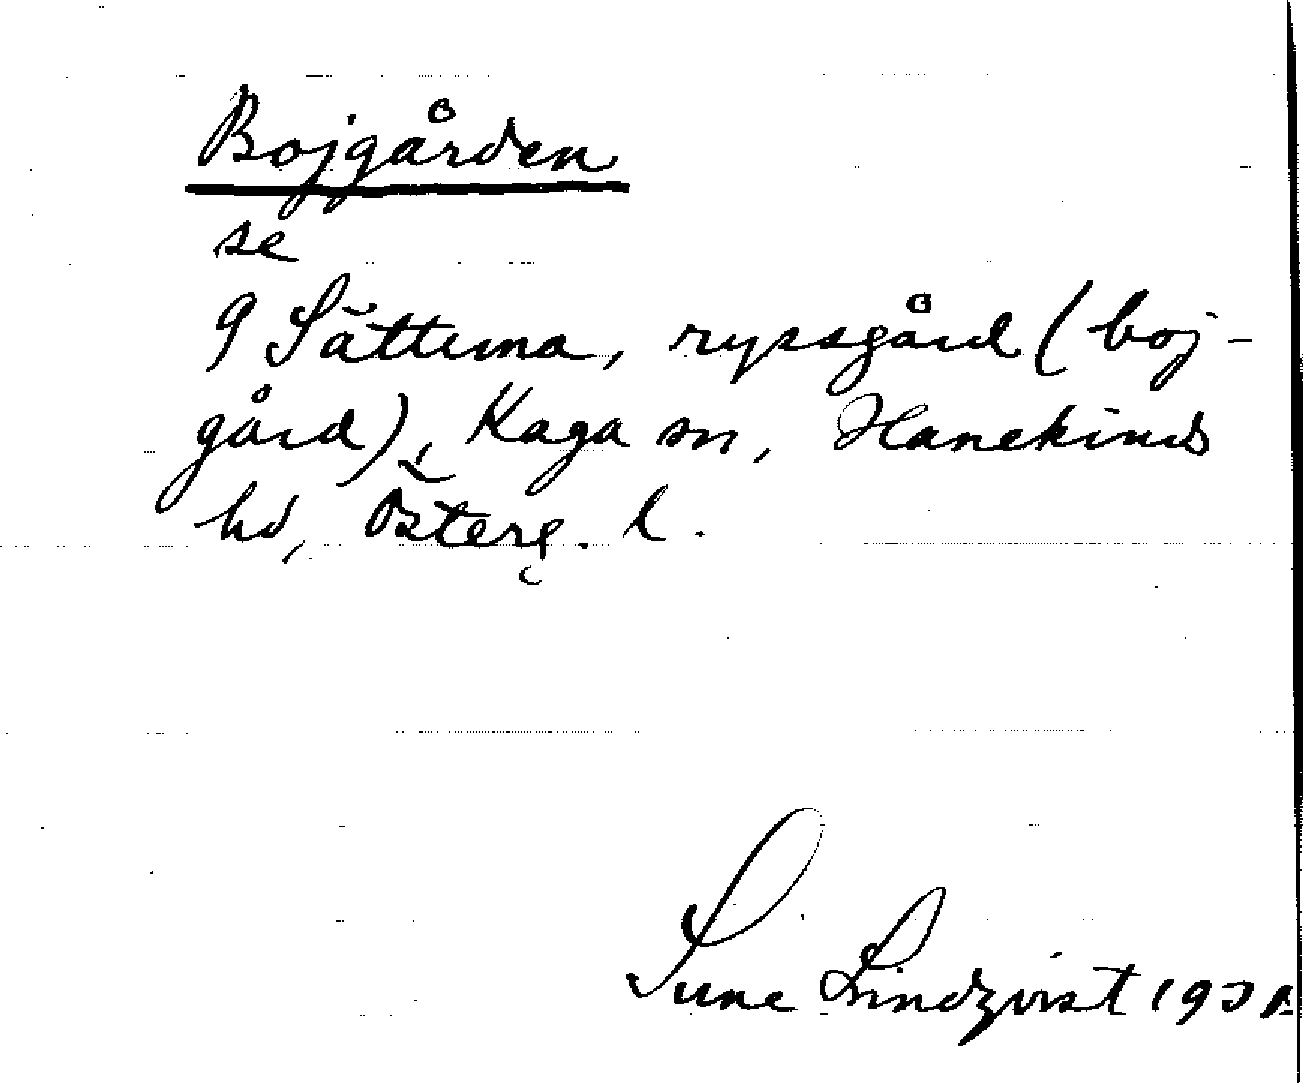 Bojgården
se
9 Sättuna, ryssgård (boj-
gård), Kaga sn, Hanekinds
hd, Österg. l.
Sune Lindqvist